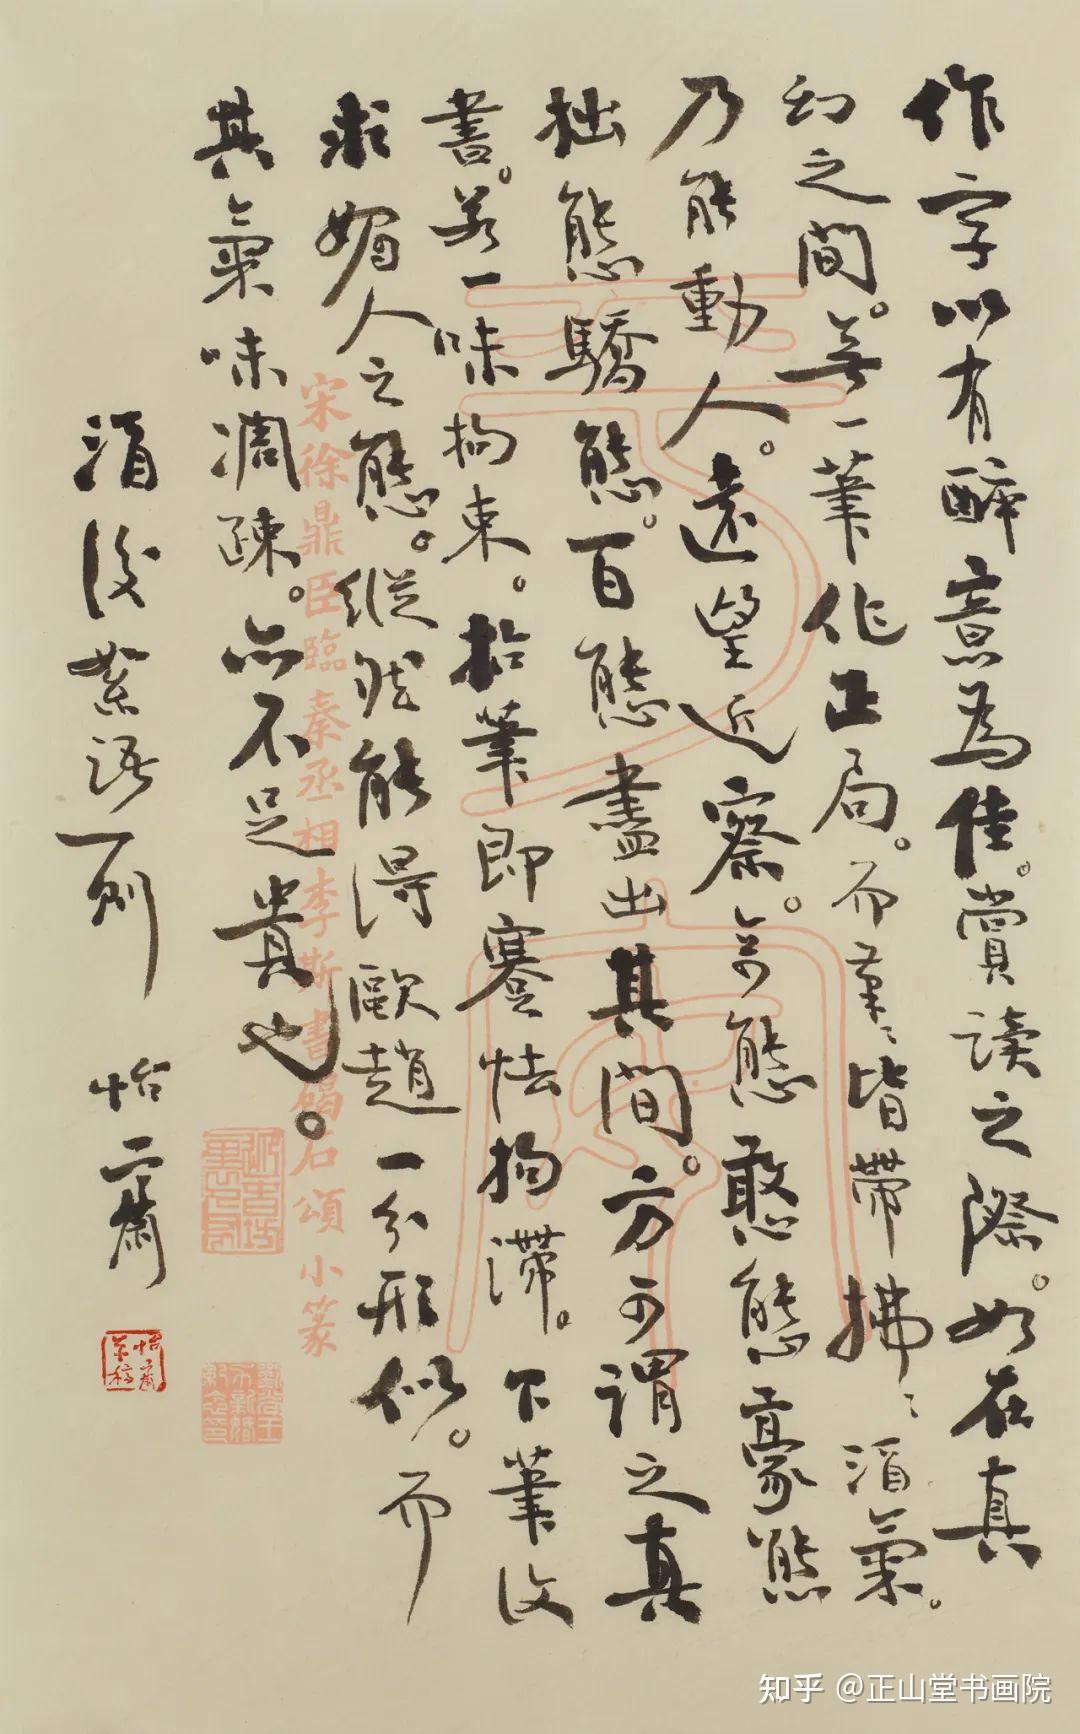 作字以有醉意為佳。賞读之際。如在真
幻之間。無一筆作正局。而筆〻皆帶拂〻酒氣。
乃能動人。遠望近察。奇態憨態豪態
拙態驕態。百態盡出其間。方可謂之真
書。若一味拘束。抬筆即蹇怯拘滯。下筆没
求媚人之態。縱然能得歐趙一分形似。而
其氣味凋疎。亦不足貴也。
酒後絮語一則 怡齋
宋徐鼎臣臨秦丞相李斯書碣石頌小篆
知乎 @正山堂书画院